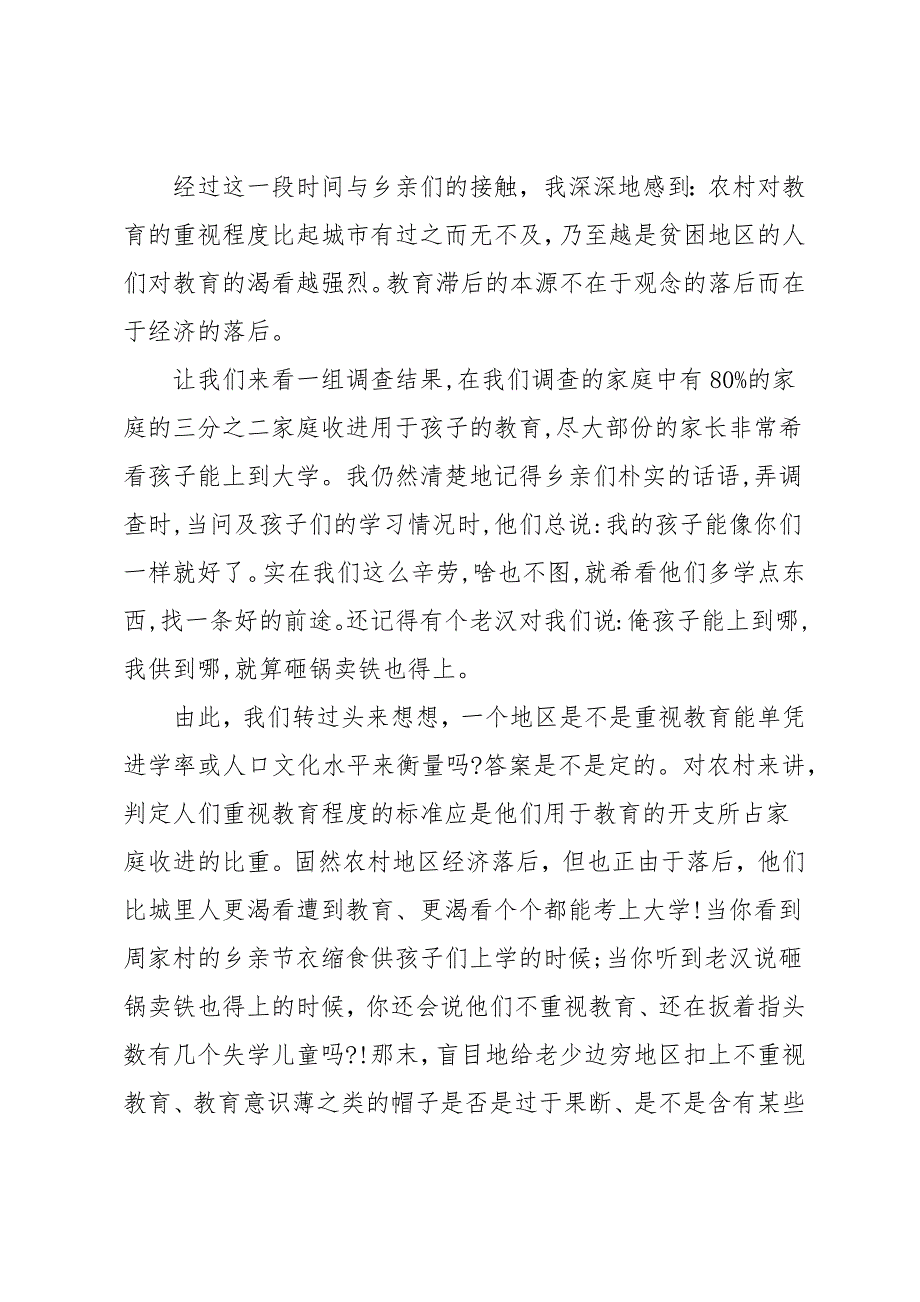 经过这一段时间与乡亲们的接触，我深深地感到：农村对教
育的重视程度比起城市有过之而无不及，乃至越是贫困地区的人
们对教育的渴看越强烈。教育滞后的本源不在于观念的落后而在
于经济的落后。
让我们来看一组调查结果,在我们调查的家庭中有 80%的家
庭的三分之二家庭收进用于孩子的教育,尽大部份的家长非常希
看孩子能上到大学。我仍然清楚地记得乡亲们朴实的话语,弄调
查时,当问及孩子们的学习情况时,他们总说:我的孩子能像你们
一样就好了。实在我们这么辛劳,啥也不图,就希看他们多学点东
西,找一条好的前途。还记得有个老汉对我们说:俺孩子能上到哪,
我供到哪,就算砸锅卖铁也得上。
由此，我们转过头来想想，一个地区是不是重视教育能单凭
进学率或人口文化水平来衡量吗?答案是不是定的。对农村来讲,
判定人们重视教育程度的标准应是他们用于教育的开支所占家
庭收进的比重。固然农村地区经济落后，但也正由于落后，他们
比城里人更渴看遭到教育、更渴看个个都能考上大学!当你看到
周家村的乡亲节衣缩食供孩子们上学的时候;当你听到老汉说砸
锅卖铁也得上的时候，你还会说他们不重视教育、还在扳着指头
数有几个失学儿童吗?!那末，盲目地给老少边穷地区扣上不重视
教育、教育意识薄之类的帽子是否是过于果断、是不是含有某些